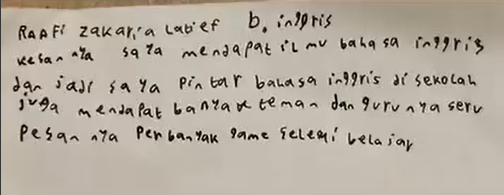 Raffi zakaria Latief b. inggris
kesan nya saya mendapat ilmu bahasa inggris
dan jadi saya pintar bahasa inggris di sekolah
juga mendapat banyak teman dan guru nya seru
Pesan nya Perbanyak game selesai belajar